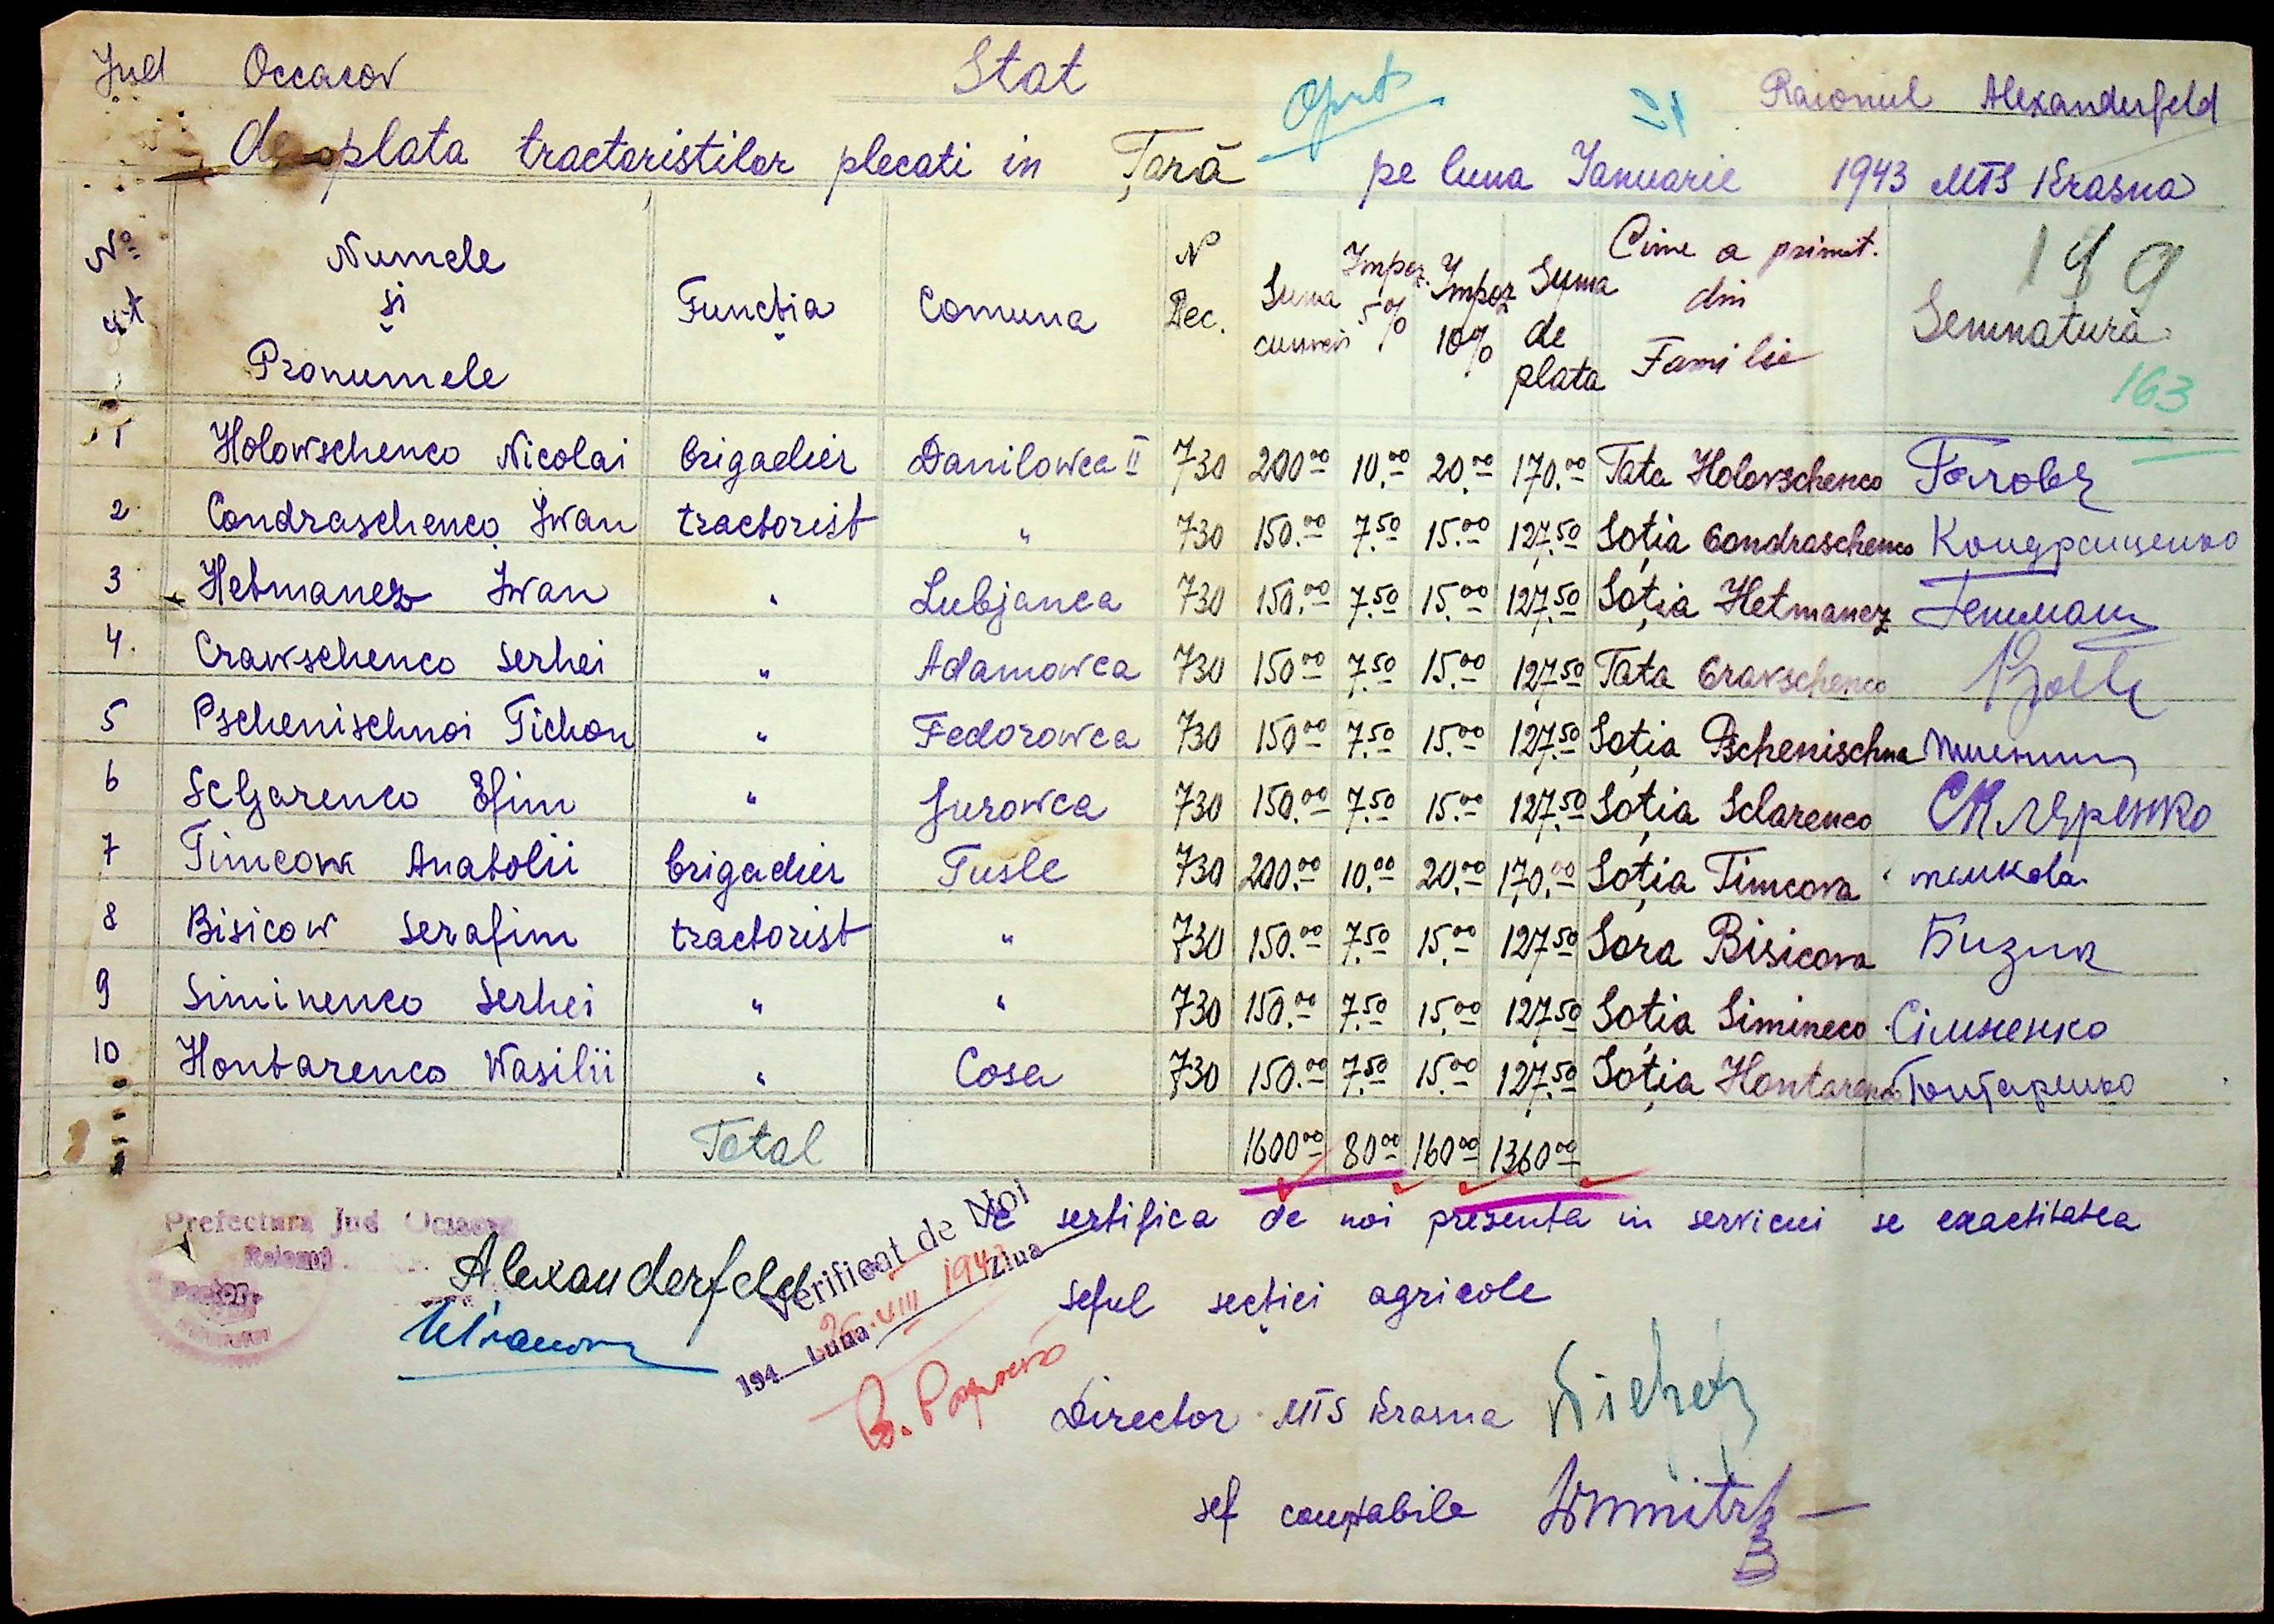 Jud Occacov Stat Raionul Alexanderfeld
de plata tractoristilor plecati in Țară pe luna Ianuarie 1943 MTS Krasna
No crt Numele și Pronumele Funcția Comuna N Dec. Suma cuveni Impoz. 5% Impoz 10% Suma de plata Cine a primit. din Familie Semnatură
189
163
1 Holowschenco Nicolai brigadier Danilowca II 730 200.00 10.00 20.00 170.00 Tata Holovschenco
2 Condraschenco Iwan tractorist " 730 150.00 7.50 15.00 127.50 Soția Condraschenco Кондращенко
3 Hetmanez Iwan " Lubjanca 730 150.00 7.50 15.00 127.50 Soția Hetmanez
4. Crawschenco Serhei " Adamowca 730 150.00 7.50 15.00 127.50 Tata Cravschenco
5 Pschenischnoi Tichon " Fedorowca 730 150.00 7.50 15.00 127.50 Soția Pschenischna
6 Scljarenco Efim " Jurowca 730 150.00 7.50 15.00 127.50 Soția Sclarenco Скляренко
7 Timcowa Anatolii brigadier Tusle 730 200.00 10.00 20.00 170.00 Soția Timcova
8 Bisicow Serafim tractorist " 730 150.00 7.50 15.00 127.50 Sora Bisicova Бизик
9 Siminenco Serhei " " 730 150.00 7.50 15.00 127.50 Soția Simineco Сіминенко
10 Hontarenco Wasilii " Cosa 730 150.00 7.50 15.00 127.50 Soția Hontarenco Гонтаренко
Total 1600.00 80.00 160.00 1360.00
Se sertifica de noi prezenta in serviciu se exactitatea
Prefectura Jud Ocsacov
Raionul
Alexanderfeld
Verificat de Noi
194 Luna Ziua
Seful secției agricole
Director MTS Krasna
sef comptabile